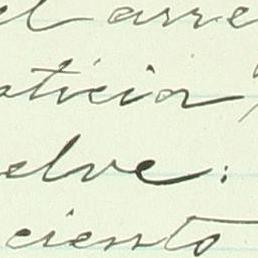 el arre
oticia,
elve:
ciento